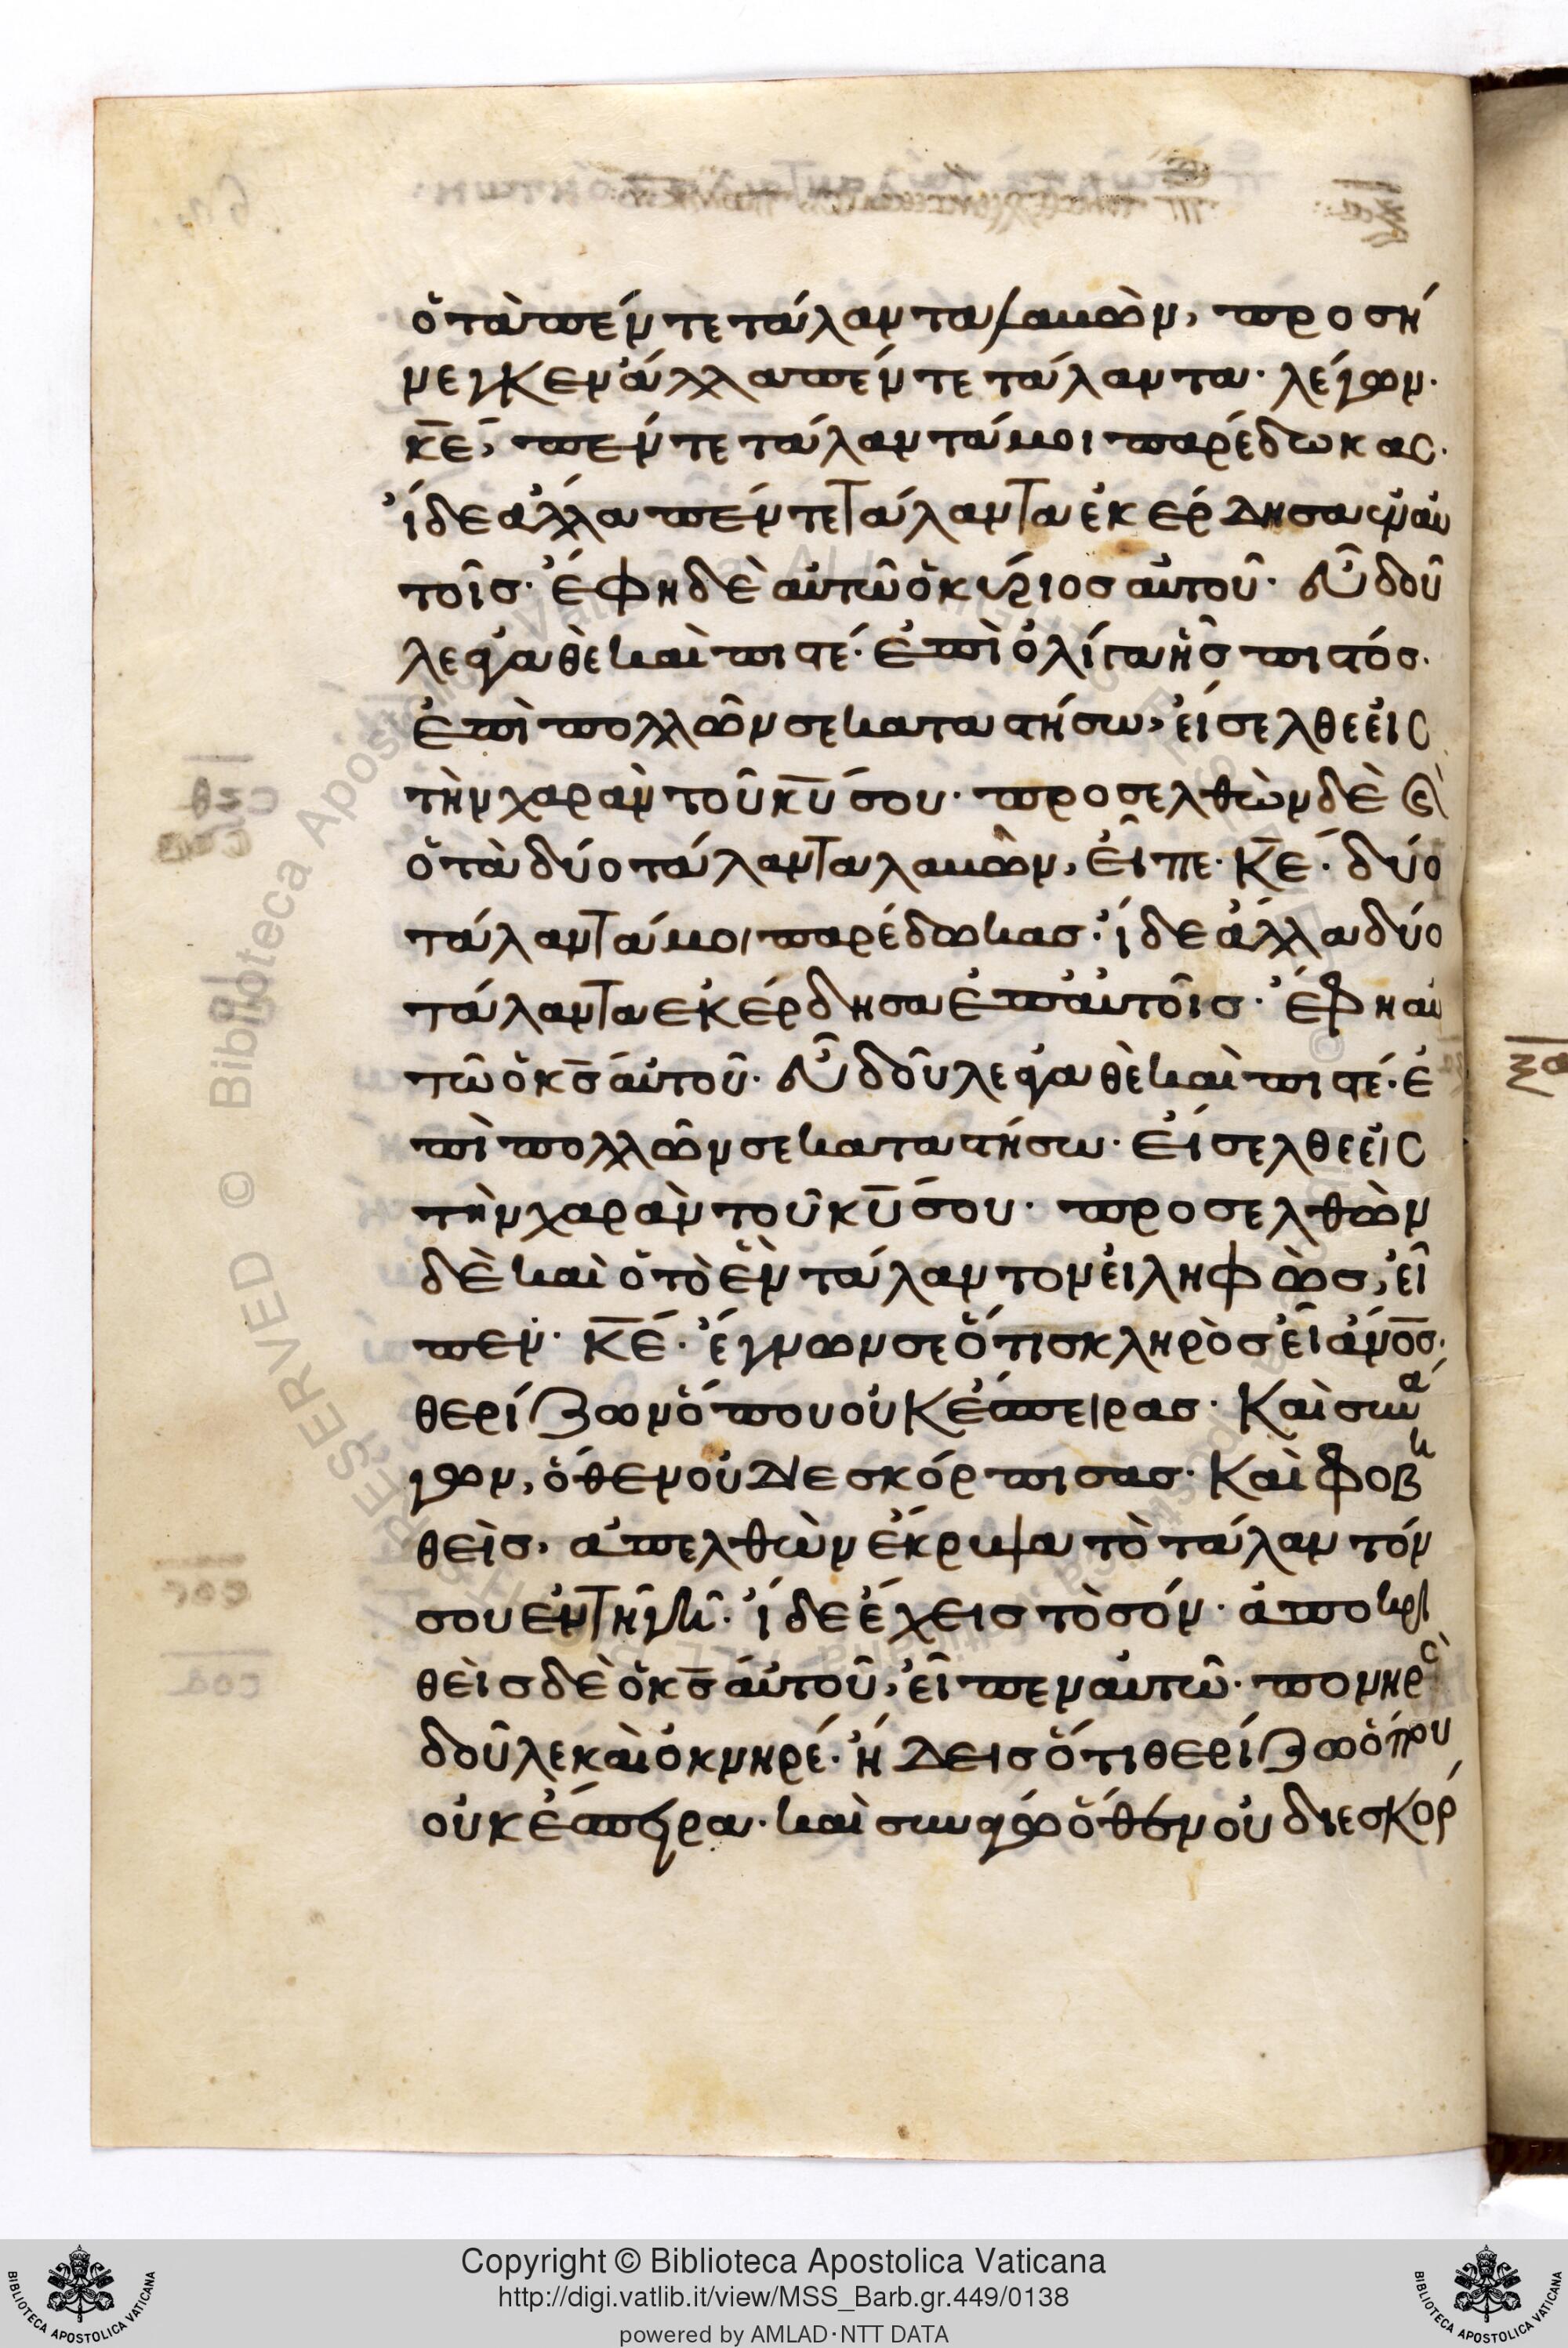 ὁ τὰ πέντε τάλαντα λαβὼν, προσή
νεγκεν ἄλλα πέντε τάλαντα· λέγων·
κ̅ε̅, πέντε τάλαντά μοι παρέδωκας·
ἴδε ἄλλα πέντε τάλαντα ἐκέρδησα ἐν αὐ
τοῖς· ἔφη δὲ αὐτῶ ὁ κύριος αὐτοῦ· εὖ δοῦ
λε ἀγαθὲ καὶ πιστέ· ἐπὶ ὀλίγα ἦς πιστός·
ἐπὶ πολλῶν σε καταστήσω, εἴσελθε εἰς
τὴν χαρὰν τοῦ κ̅υ̅ σου· προσελθὼν δὲ κ(αὶ)
ὁ τὰ δύο τάλαντα λαβὼν, εἶπε· κ̅ε̅· δύο
τάλαντά μοι παρέδωκας· ἴδε ἄλλα δύο
τάλαντα ἐκέρδησα ἐπ' αὐτοῖς· ἔφη αὐ
τῶ ὁ κ̅ς̅ αὐτοῦ· εὖ δοῦλε ἀγαθὲ καὶ πιστέ· ἐ
πὶ πολλῶν σε καταστήσω· εἴσελθε εἰς
τὴν χαρὰν τοῦ κ̅υ̅ σου· προσελθὼν
δὲ καὶ ὁ τὸ ἓν τάλαντον εἰληφὼς, εἶ
πεν· κ̅ε̅· ἔγνων σε ὅτι σκληρὸς εἶ ἄν̅ο̅ς̅·
θερίζων ὅπου οὐκ ἔσπειρας· καὶ συνά
γων, ὅθεν οὐ διεσκόρπισας· καὶ φοβη
θεὶς, ἀπελθὼν ἔκρυψα τὸ τάλαντόν
σου ἐν τῆ γῆ· ἴδε ἔχεις τὸ σόν· ἀποκρι
θεὶς δὲ ὁ κ̅ς̅ αὐτοῦ, εἶπεν αὐτῶ· πονηρὲ
δοῦλε καὶ ὀκνηρέ· ἤδεις ὅτι θερίζω ὅπου
οὐκ ἔσπειρα· καὶ συνάγω ὅθεν οὐ διεσκόρ
Copyright © Biblioteca Apostolica Vaticana
http://digi.vatlib.it/view/MSS_Barb.gr.449/0138
powered by AMLAD·NTT DATA
BIBLIOTECA APOSTOLICA VATICANA
BIBLIOTECA APOSTOLICA VATICANA